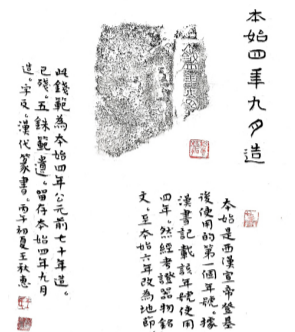 本始四年九月造
本始是西漢宣帝登基
後使用的第一個年號。據
漢書記載該年號使用
四年然經考證器物銘
文。至本始六年改為地節
此錢範為本始四年公元前七十年造。
已殘。五銖範遺。留存本始四年九月
造。字及。漢代篆書。丙午初夏王秋惠